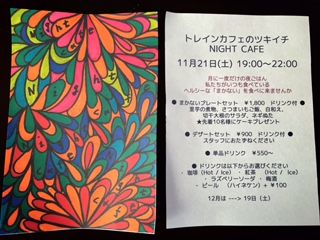 トレインカフェのツキイチ
NIGHT CAFE
11月21日(土) 19:00~22:00
月に一度だけの夜ごはん
私たちがいつも食べている
ヘルシーな『まかない』を食べに来ませんか
● まかないプレートセット ¥1,800 ドリンク付 ●
里芋の煮物、さつまいもご飯、白和え、
切干大根のサラダ、ネギぬた
★先着10名様にケーキプレゼント
● デザートセット ¥900 ドリンク付 ●
スタッフにおたずねください
● 単品ドリンク ¥550~
●ドリンクは以下からお選びください
・珈琲 (Hot / Ice) ・紅茶 (Hot / Ice)
・ラズベリーソーダ ・梅酒
・ビール (ハイネケン) + ¥100
12月は ---> 19日(土)